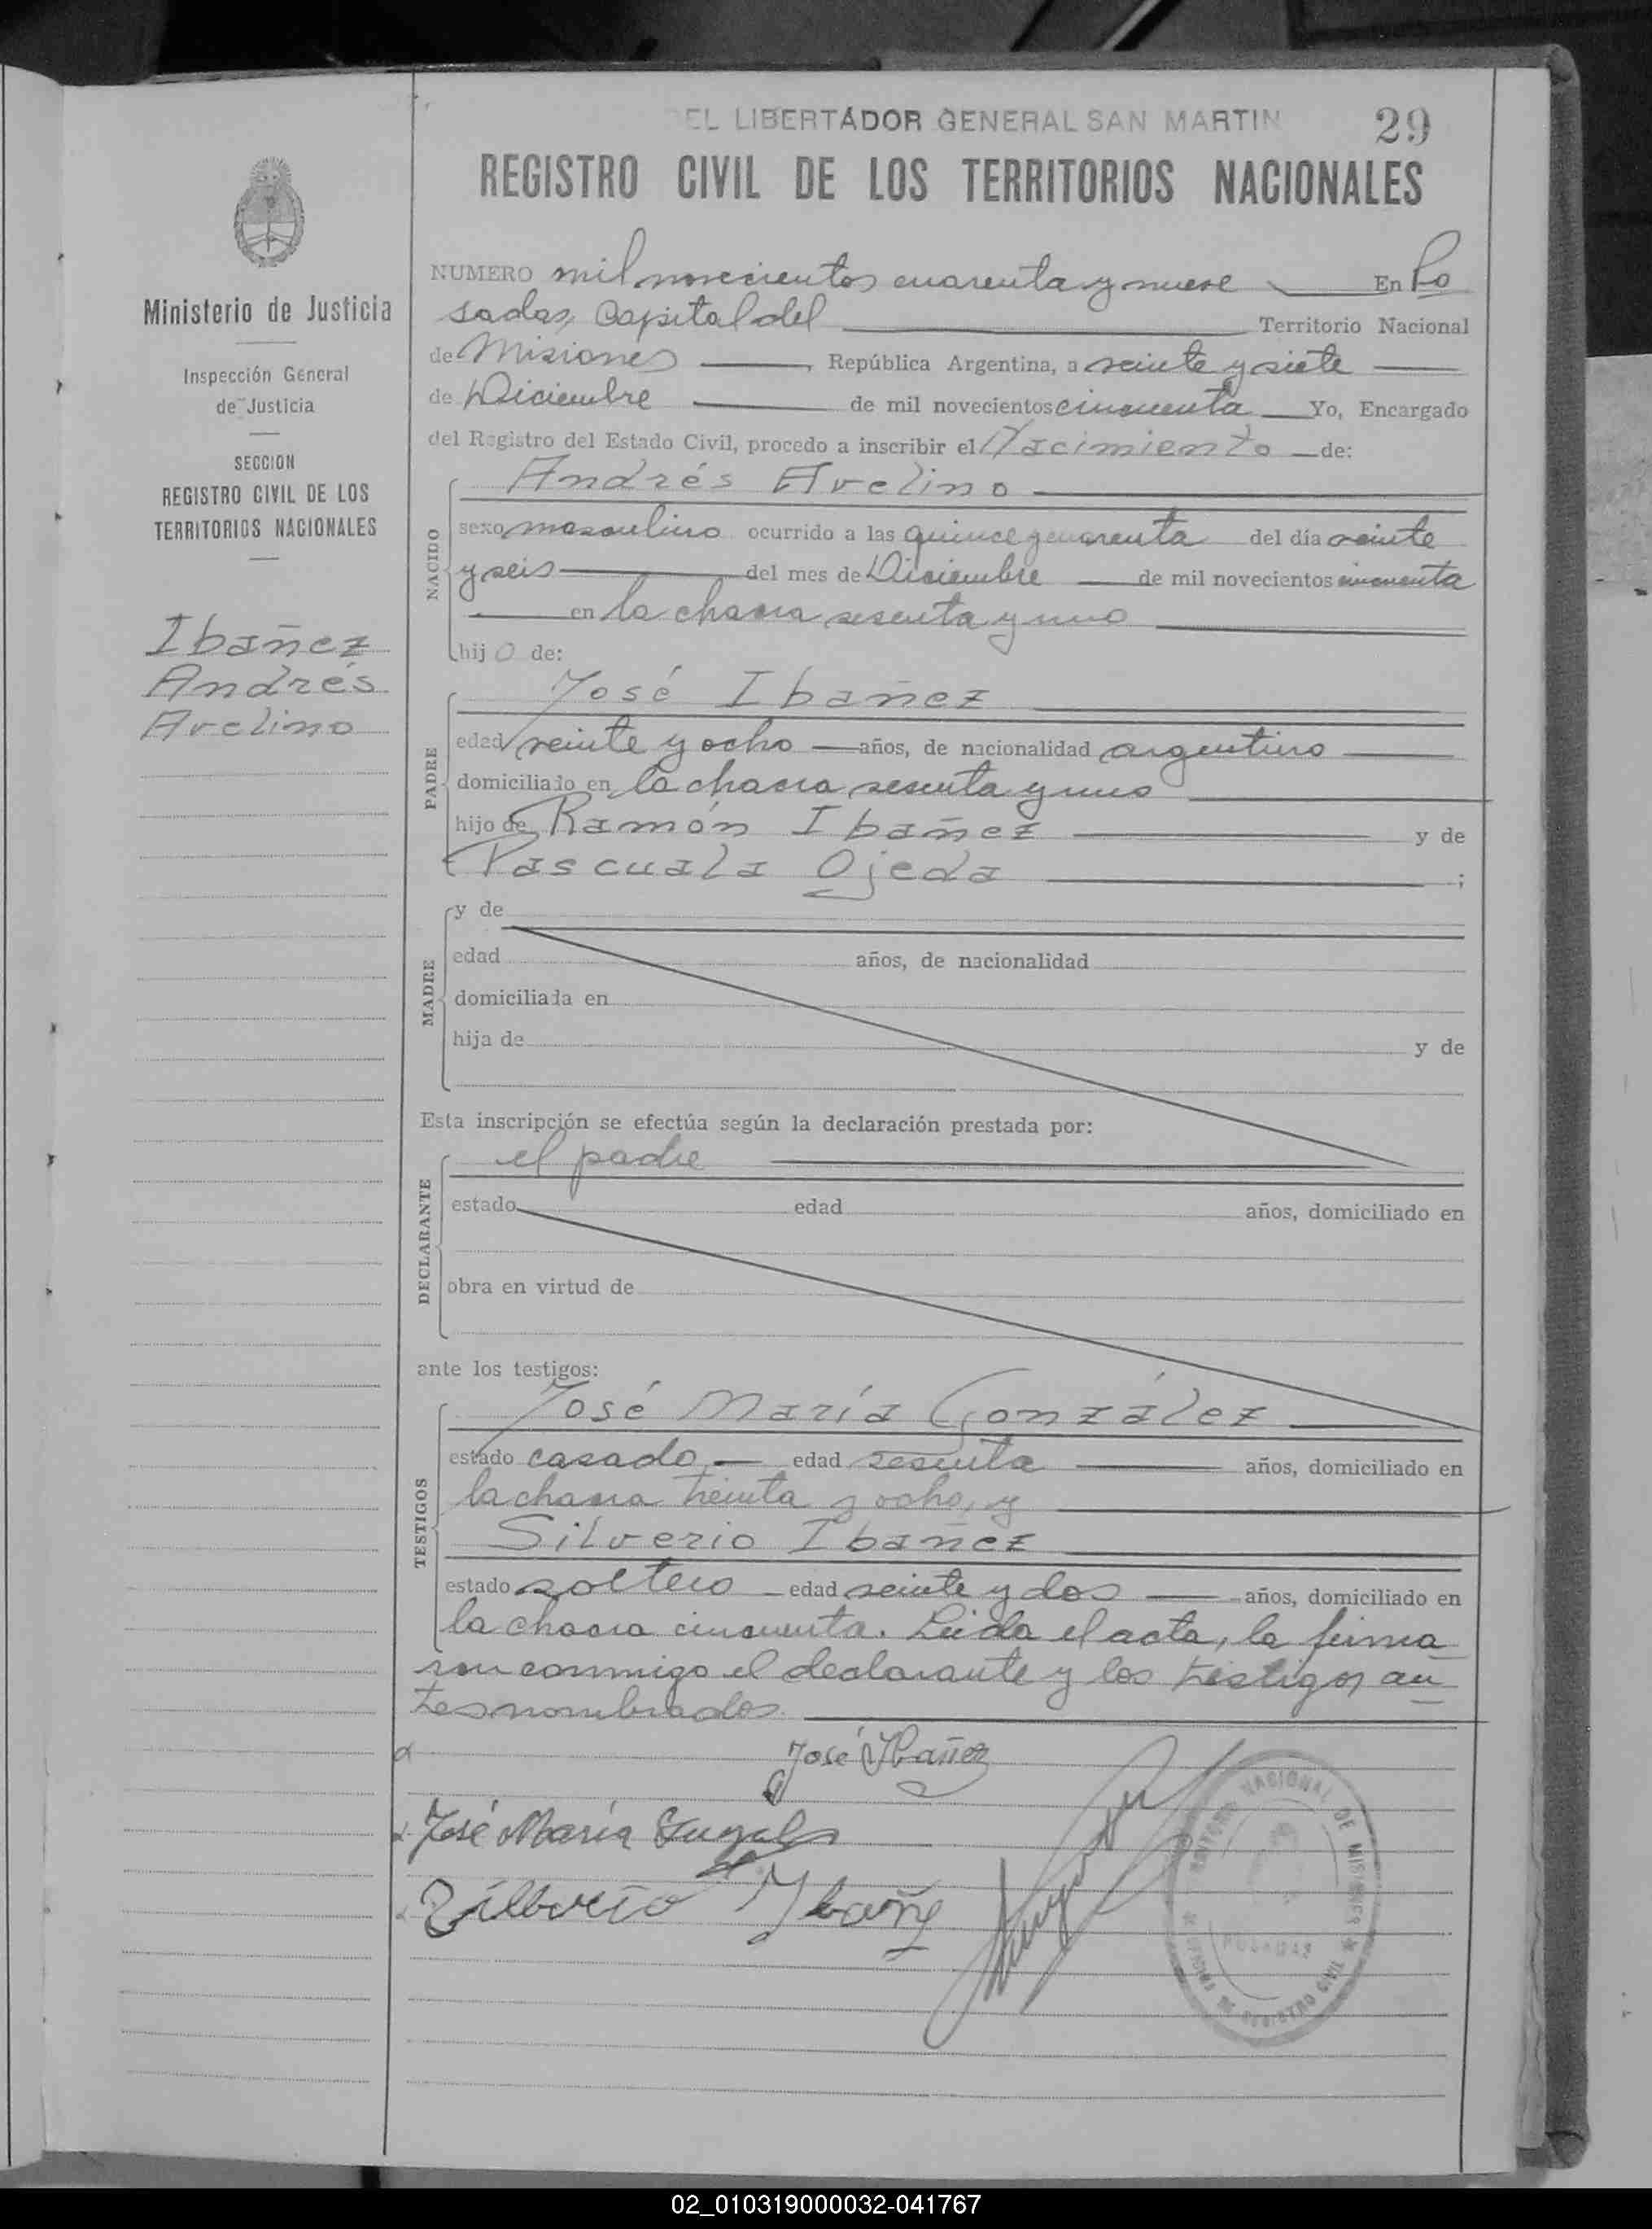 DEL LIBERTADOR GENERAL SAN MARTIN 29
REGISTRO CIVIL DE LOS TERRITORIOS NACIONALES
Ministerio de Justicia
Inspección General
de Justicia
SECCION
REGISTRO CIVIL DE LOS
TERRITORIOS NACIONALES
Ibañez
Andrés
Avelino
NUMERO mil novecientos cuarenta y nueve En Po
sadas, Capital del Territorio Nacional
de Misiones, República Argentina, a veinte y siete
de Diciembre de mil novecientos cincuenta Yo, Encargado
del Registro del Estado Civil, procedo a inscribir el Nacimiento de:
Andrés Avelino
NACIDO
sexo masculino ocurrido a las quince y cuarenta del día veinte
y seis del mes de Diciembre de mil novecientos cincuenta
en la chacra sesenta y uno
hijo de:
José Ibañez
PADRE
edad veinte y ocho años, de nacionalidad argentino
domiciliado en la chacra sesenta y uno
hijo de Ramón Ibañez y de
Pascuala Ojeda ;
MADRE
y de
edad años, de nacionalidad
domiciliada en
hija de y de
Esta inscripción se efectúa según la declaración prestada por:
el padre
DECLARANTE
estado edad años, domiciliado en
obra en virtud de
ante los testigos:
José María González
TESTIGOS
estado casado edad sesenta años, domiciliado en
la chacra treinta y ocho, y
Silverio Ibañez
estado soltero edad veinte y dos años, domiciliado en
la chacra cincuenta. Leida el acta, la firma
ron conmigo el declarante y los testigos an
tes nombrados.
José Ibañez
José María Gonzales
Silverio Ybañez
TERRITORIO NACIONAL DE MISIONES
POSADAS
OFICINA DE REGISTRO CIVIL
02_010319000032-041767